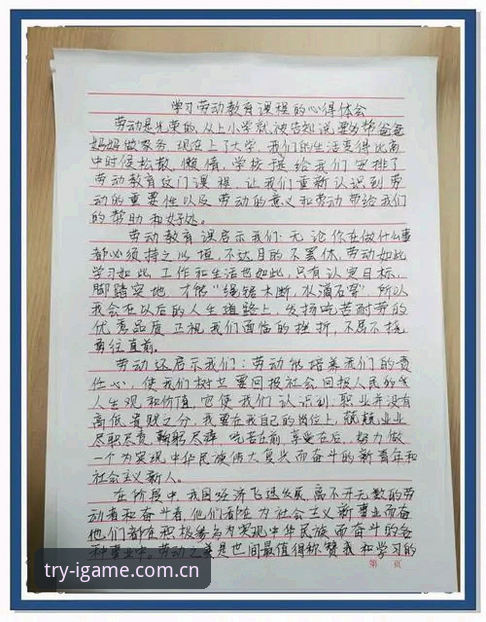 学习劳动教育课程的心得体会
劳动是光荣的,从上小学就被告知说要多帮爸爸
妈妈做家务,现在上了大学,我们的生活变得比高
中时候松散、懒惰,学校里给我们安排了
劳动教育这门课程,让我们重新认识到劳
动的重要性以及劳动的意义和劳动带给我们
的帮助和好处。
劳动教育课启示我们:无论你在做什么事
都必须持之以恒,不达目的不罢休,劳动如此
学习如此,工作和生活也如此,只有认定目标,
脚踏实地,才能"绳锯木断,水滴石穿",所以
我会在以后的人生道路上,发扬吃苦耐劳的
优秀品质,正视我们面临的挫折,不屈不挠,
勇往直前。
劳动还启示我们:劳动能培养我们的责
任心,使我们树立要回报社会回报人民的
人生观和价值,它使我们认识到:职业并没有
高低贵贱之分,我要在我自己的岗位上,兢兢业业
尽职尽责,鞠躬尽瘁,吃苦在前,享受在后,努力做
一个为实现中华民族伟大复兴而奋斗的新青年和
社会主义新人。
在价段中我国经济飞速发展,离不开无数的劳
动者和奋斗者,他们都在为社会主义新事业而奋
他们都在积极参与为实现中华民族而奋斗的各
种事业中。劳动之美是世间最值得称赞我和学习的
第 页
try-igame.com.cn